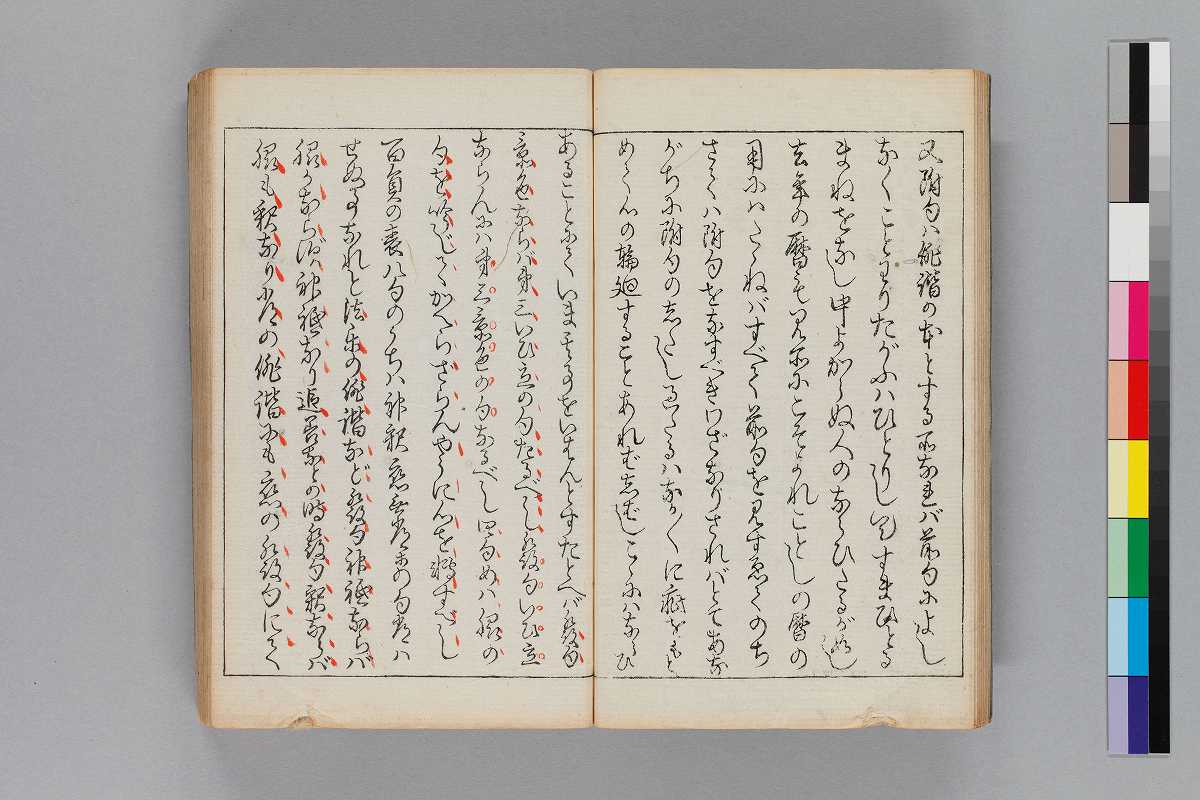 又附句ハ俳諧の本とする所なれバ前句によし
なくことわりたがふハひとりし
まねをなし中よからぬ人のならひたるがごとし
去年の暦も見所にこそよれことしの暦の
用にハたゝねバすべて前句を見すゑてのち
さてハ附句をなすべきわざなりされバとてあな
がちに附句の志たし過たるハなか〳〵に
めて心の輪廻することあれば志ばしこゝにハならひ
あることにていま其事をいはんとすたとへバ発句
景色ならバ第三いひ立の句たるべし発句いひ立
ならんにハ第三景色の句なるべし四句めハ脇の
句を吟じてかへらざらんやうに心を転ずべし
百員の表八句のうちハ神釈恋無常の句常ハ
せぬ事なれと法楽の俳諧など発句神祇ならバ
脇もかならず神祇なり追善などの時発句釈ならバ
脇も釈なり常の俳諧にも恋の発句にて